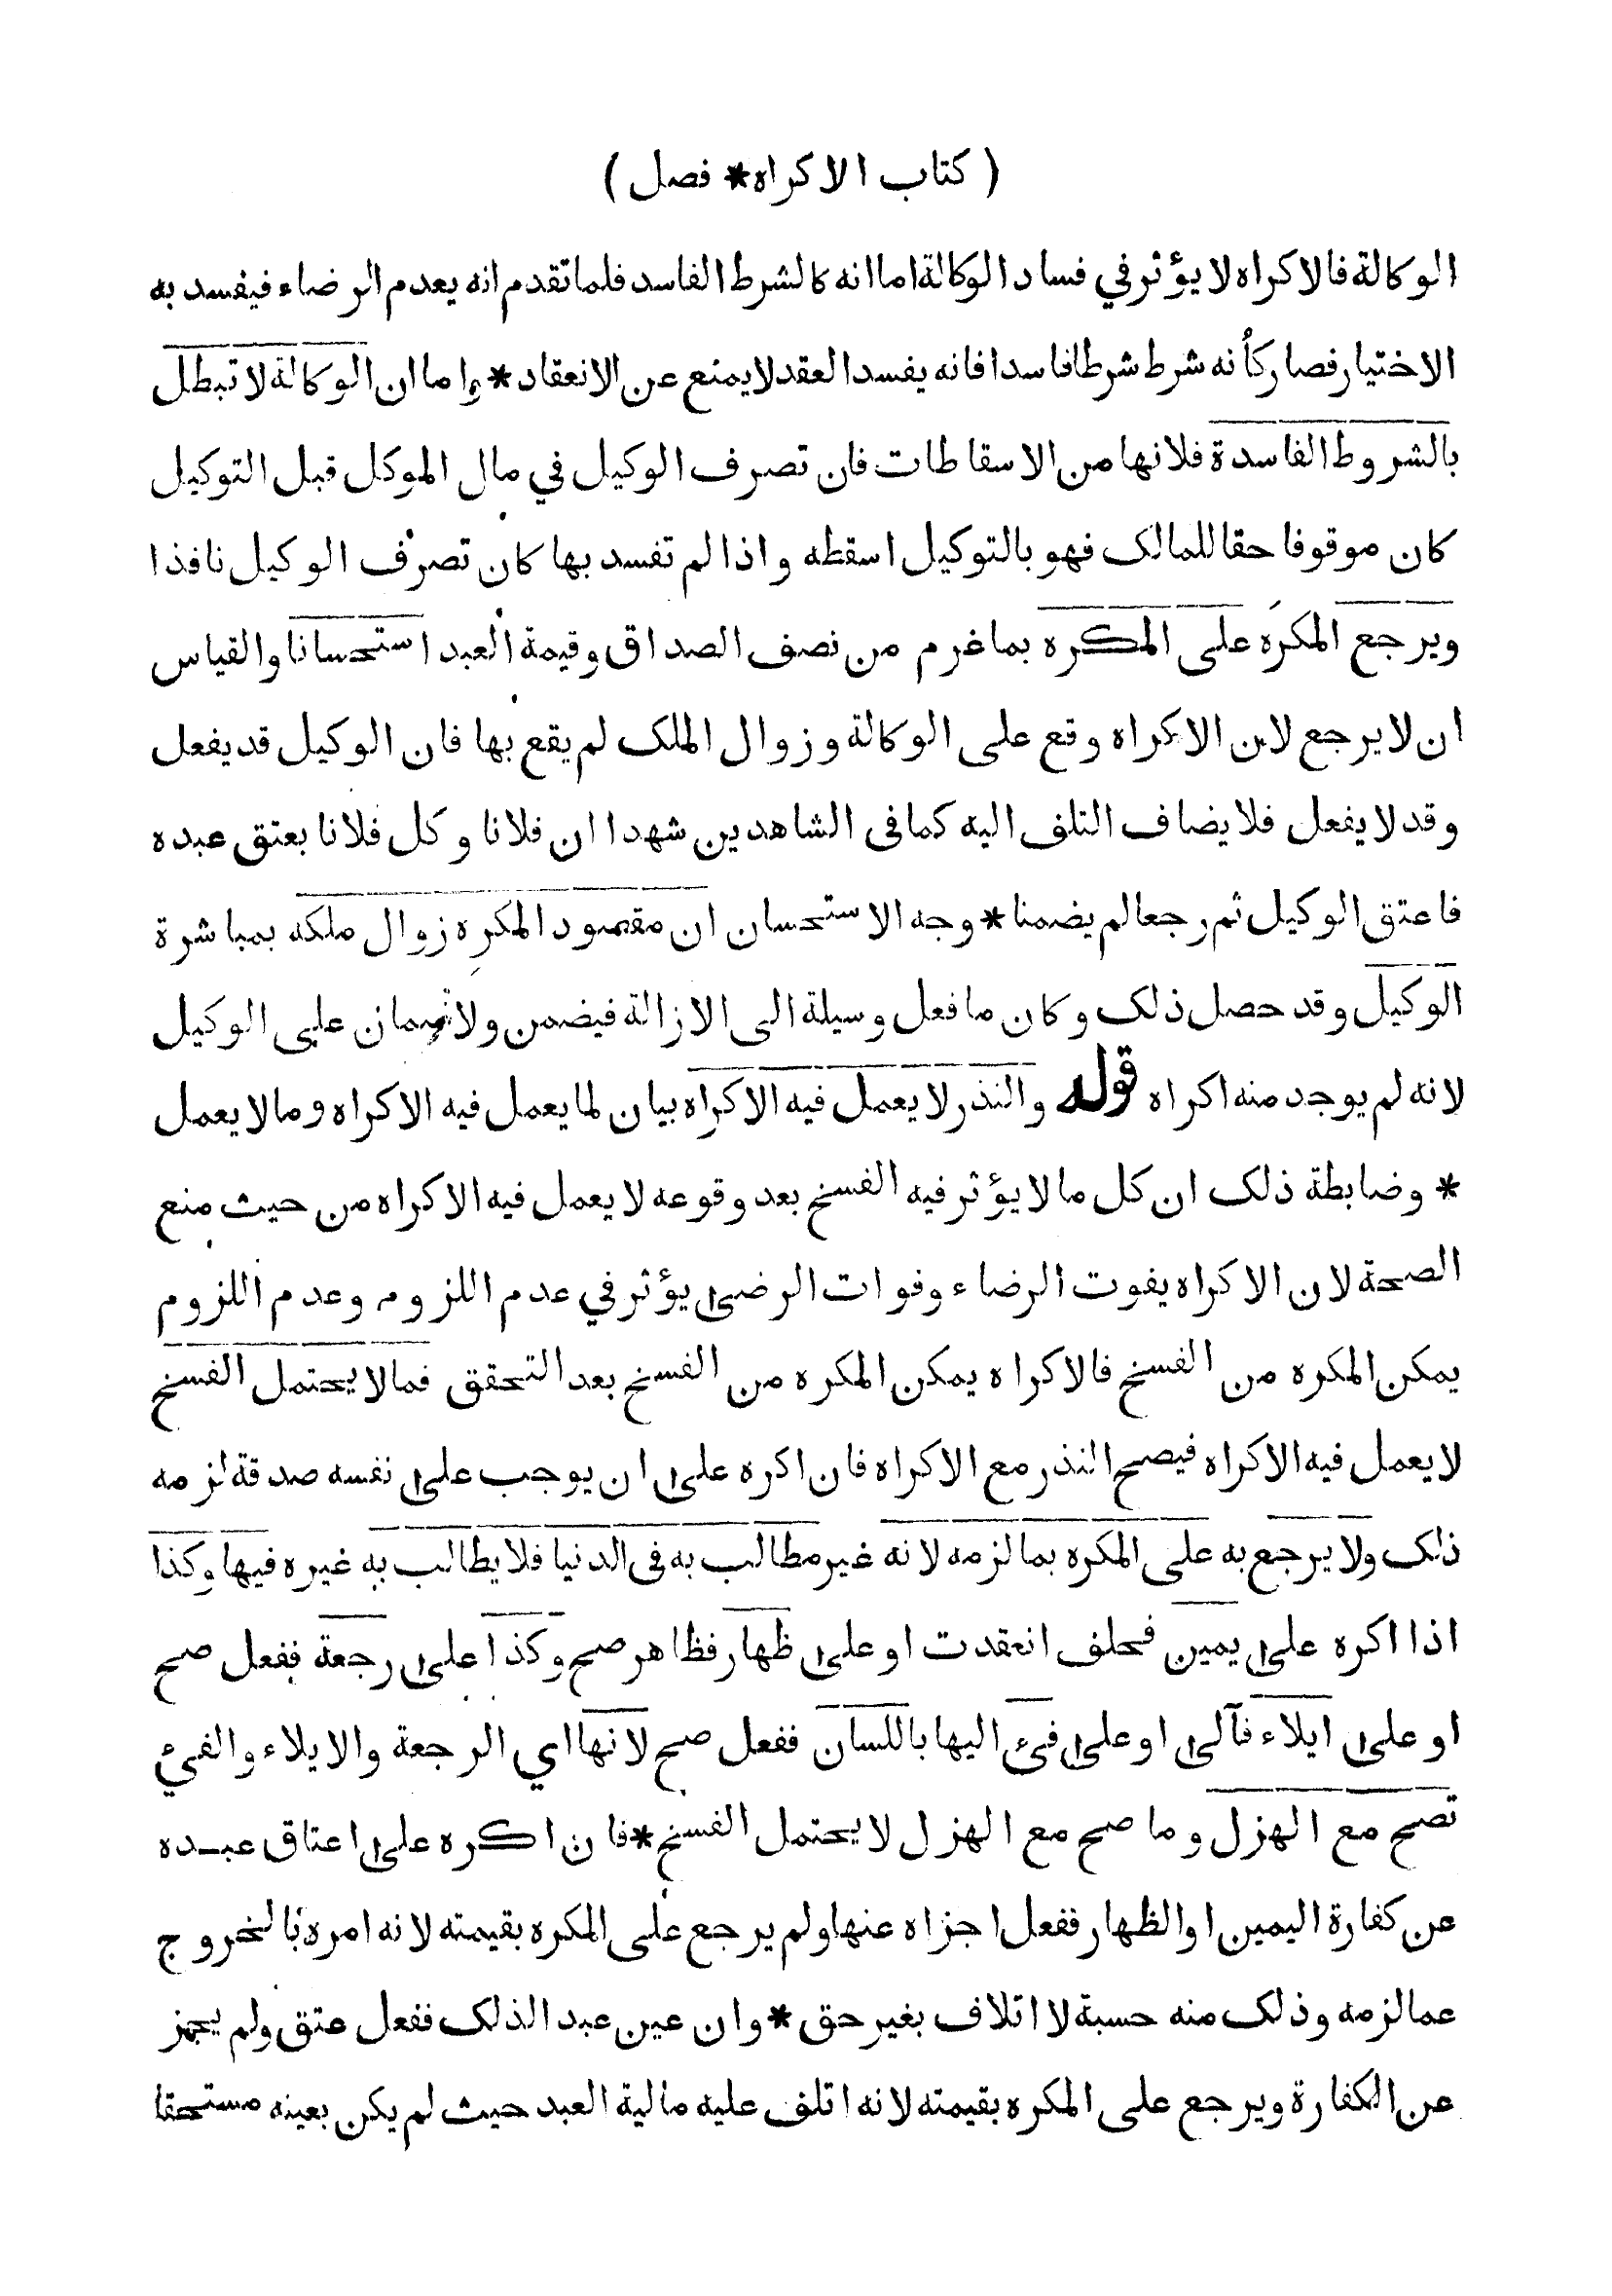 ( كتاب الاكراه * فصل )
الوكالة فالاكراه لا يؤثر في فساد الوكالة اما انه كالشرط الفاسد فلما تقدم انه يعدم الرضاء فيفسد به
الاختيار فصار كأنه شرط شرطا فاسدا فانه يفسد العقد لا يمنع عن الانعقاد * واما ان الوكالة لا تبطل
بالشروط الفاسدة فلانها من الاسقاطات فان تصرف الوكيل في مال الموكل قبل التوكيل
كان موقوفا حقا للمالك فهو بالتوكيل اسقطه واذا لم تفسد بها كان تصرف الوكيل نافذا
ويرجع المكرَه على المكره بما غرم من نصف الصداق وقيمة العبد استحسانا والقياس
ان لا يرجع لان الاكراه وقع على الوكالة وزوال الملك لم يقع بها فان الوكيل قد يفعل
وقد لا يفعل فلا يضاف التلف اليه كما فى الشاهدين شهدا ان فلانا وكل فلانا بعتق عبده
فاعتق الوكيل ثم رجعا لم يضمنا * وجه الاستحسان ان مقصود المكرِه زوال ملكه بمباشرة
الوكيل وقد حصل ذلك وكان ما فعل وسيلة الى الازالة فيضمن ولا ضمان على الوكيل
لانه لم يوجد منه اكراه قوله والنذر لا يعمل فيه الاكراه بيان لما يعمل فيه الاكراه وما لا يعمل
* وضابطة ذلك ان كل ما لا يؤثر فيه الفسخ بعد وقوعه لا يعمل فيه الاكراه من حيث منع
الصحة لان الاكراه يفوت الرضاء وفوات الرضى يؤثر في عدم اللزوم وعدم اللزوم
يمكن المكره من الفسخ فالاكراه يمكن المكره من الفسخ بعد التحقق فما لا يحتمل الفسخ
لا يعمل فيه الاكراه فيصح النذر مع الاكراه فان اكره على ان يوجب على نفسه صدقة لزمه
ذلك ولا يرجع به على المكره بما لزمه لانه غير مطالب به فى الدنيا فلا يطالب به غيره فيها وكذا
اذا اكره على يمين فحلف انعقدت او على ظهار فظاهر صح وكذا على رجعة ففعل صح
او على ايلاء فآلى او على فئ اليها باللسان ففعل صح لانها اي الرجعة والايلاء والفيئ
تصح مع الهزل وما صح مع الهزل لا يحتمل الفسخ * فان اكره على اعتاق عبده
عن كفارة اليمين او الظهار ففعل اجزاه عنها ولم يرجع على المكره بقيمته لانه امره بالخروج
عما لزمه وذلك منه حسبة لا اتلاف بغير حق * وان عين عبدا لذلك ففعل عتق ولم يجز
عن الكفارة ويرجع على المكره بقيمته لانه اتلف عليه مالية العبد حيث لم يكن بعينه مستحقا